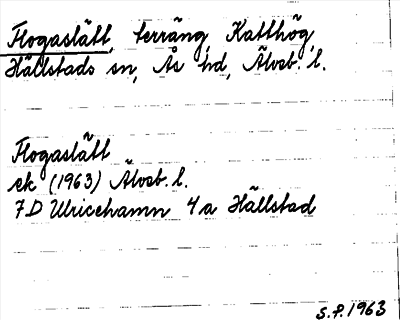 Flogaslätt, terräng, Katthög,
Hällstads sn, Ås hd, Älvsb. l.
Flogaslätt
ek (1963) Älvsb. l.
7D Ulricehamn 4a Hällstad
S.F. 1963